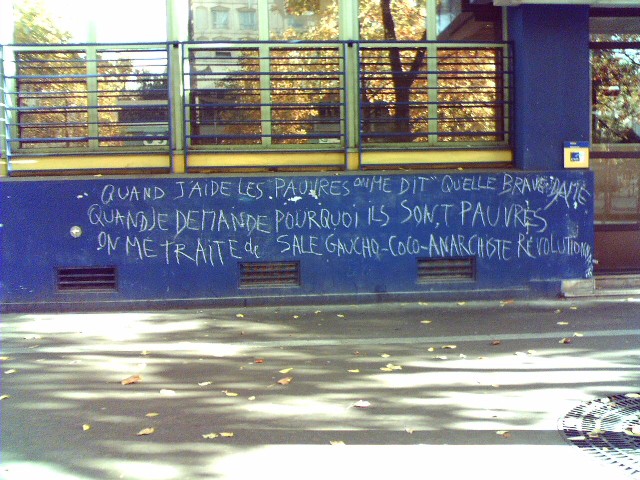 QUAND J'AIDE LES PAUVRES ON ME DIT "QUELLE BRAVE DAME
QUAND JE DEMANDE POURQUOI ILS SONT PAUVRES
ON ME TRAITE de SALE GAUCHO-COCO-ANARCHISTE RÉVOLUTION